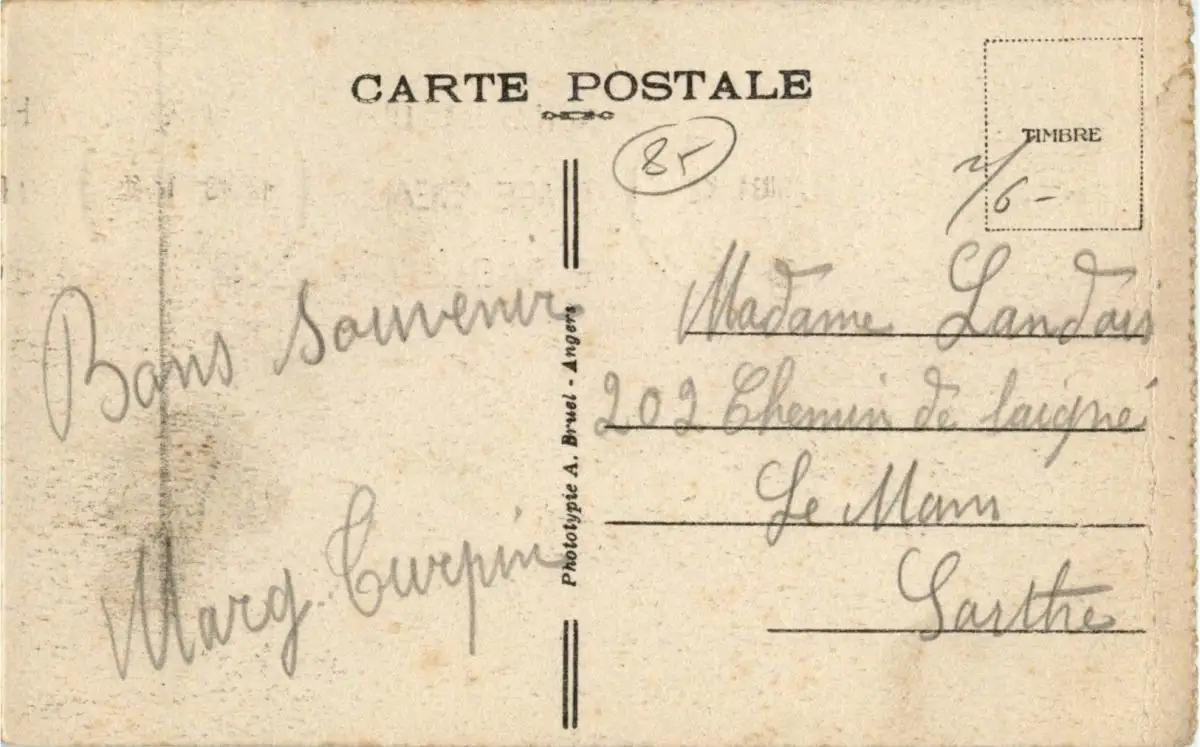 CARTE POSTALE
TIMBRE
85
Bons Souvenir
Marg. Turpin
Phototypie A. Bruel - Angers
Madame Landais
202 Chemin de laigné
Le Mans
Sarthe